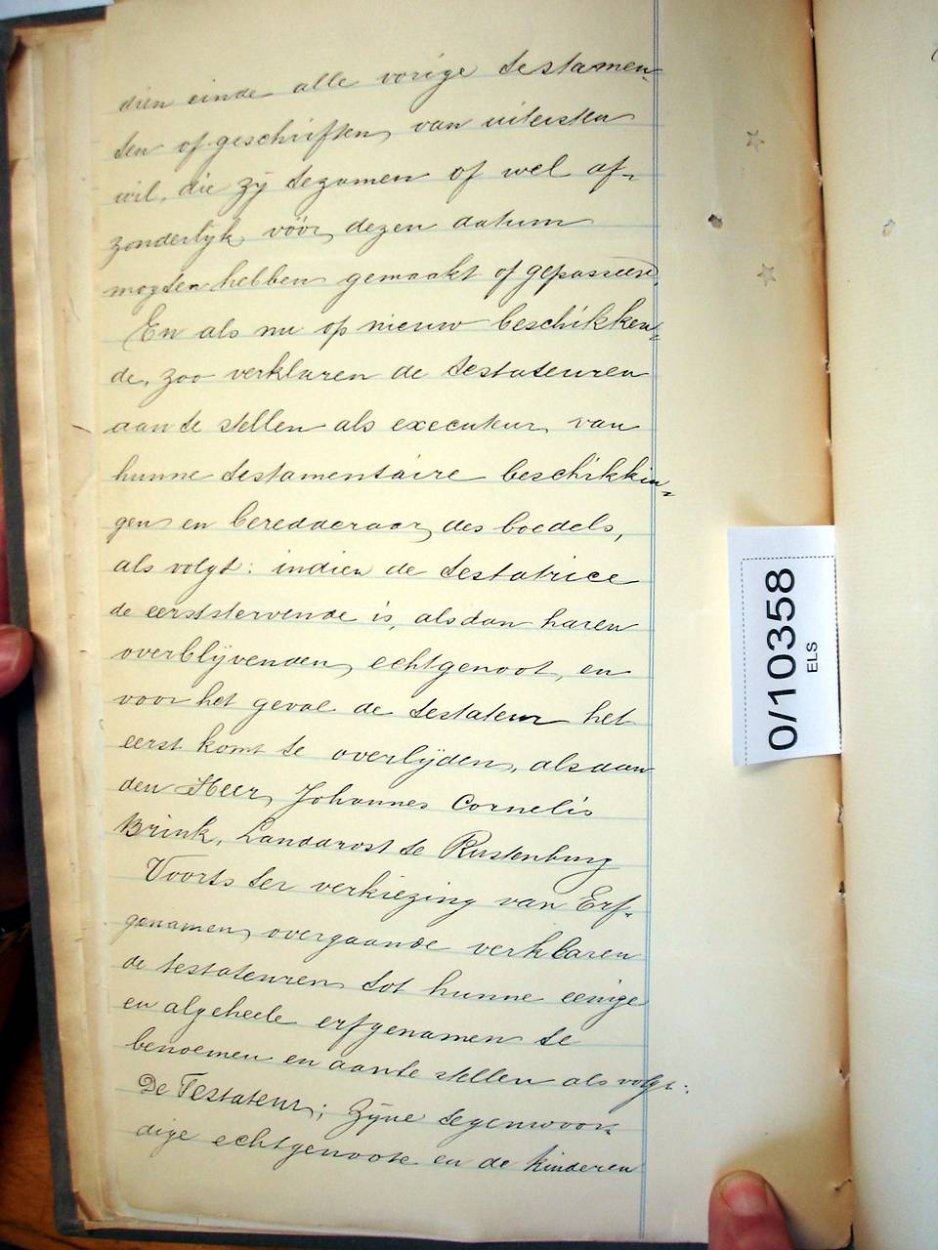 dien einde alle vorige testamen-
ten of geschriften van uitersten
wil, die zij tezamen of wel af-
zonderlijk vóór dezen datum
mogten hebben gemaakt of gepasseerd,
En als nu op nieuw beschikken-
de, zoo verklaren de testateuren
aan te stellen als executeur van
hunne testamentaire beschikkin-
gen en beredderaar des boedels,
als volgt: indien de testatrice
de eerststervende is, alsdan haren
overblijvenden echtgenoot, en
voor het geval de testateur het
eerst komt te overlijden, alsdan
den Heer Johannes Cornelis
Brink, Landdrost te Rustenburg
Voorts ter verkiezing van Erf-
genamen overgaande verklaren
de testateuren tot hunne eenige
en algeheele erfgenamen te
benoemen en aante stellen als volgt:
De Testateur; Zijne tegenwoor-
dige echtgenoote en de kinderen
0/10358
ELS